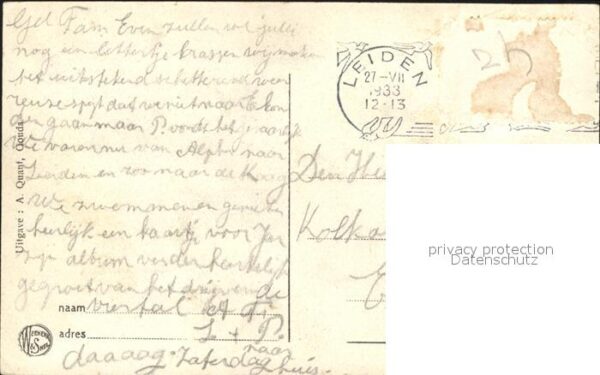 Gel Fam Even zullen we jullie
nog een lettertje krassen wij maken
het uitstekend schitterend weer
reuze spijt dat we niet naar E kon
den gaan maar P. wordt het
We waren nu van Alphen naar
Leerden en zoo naar de Kaag
We zwemmen en genieten
heerlijk een kaartje voor
zijn album verder hartelijk
gegroet van het drijvende
naam viertal
adres L + P
daaaag. Zaterdag naar huis.
Uitgave : A. Quant, Gouda
LEIDEN
27-VII
1933
12-13
Den Hee
Kolka
privacy protection
Datenschutz